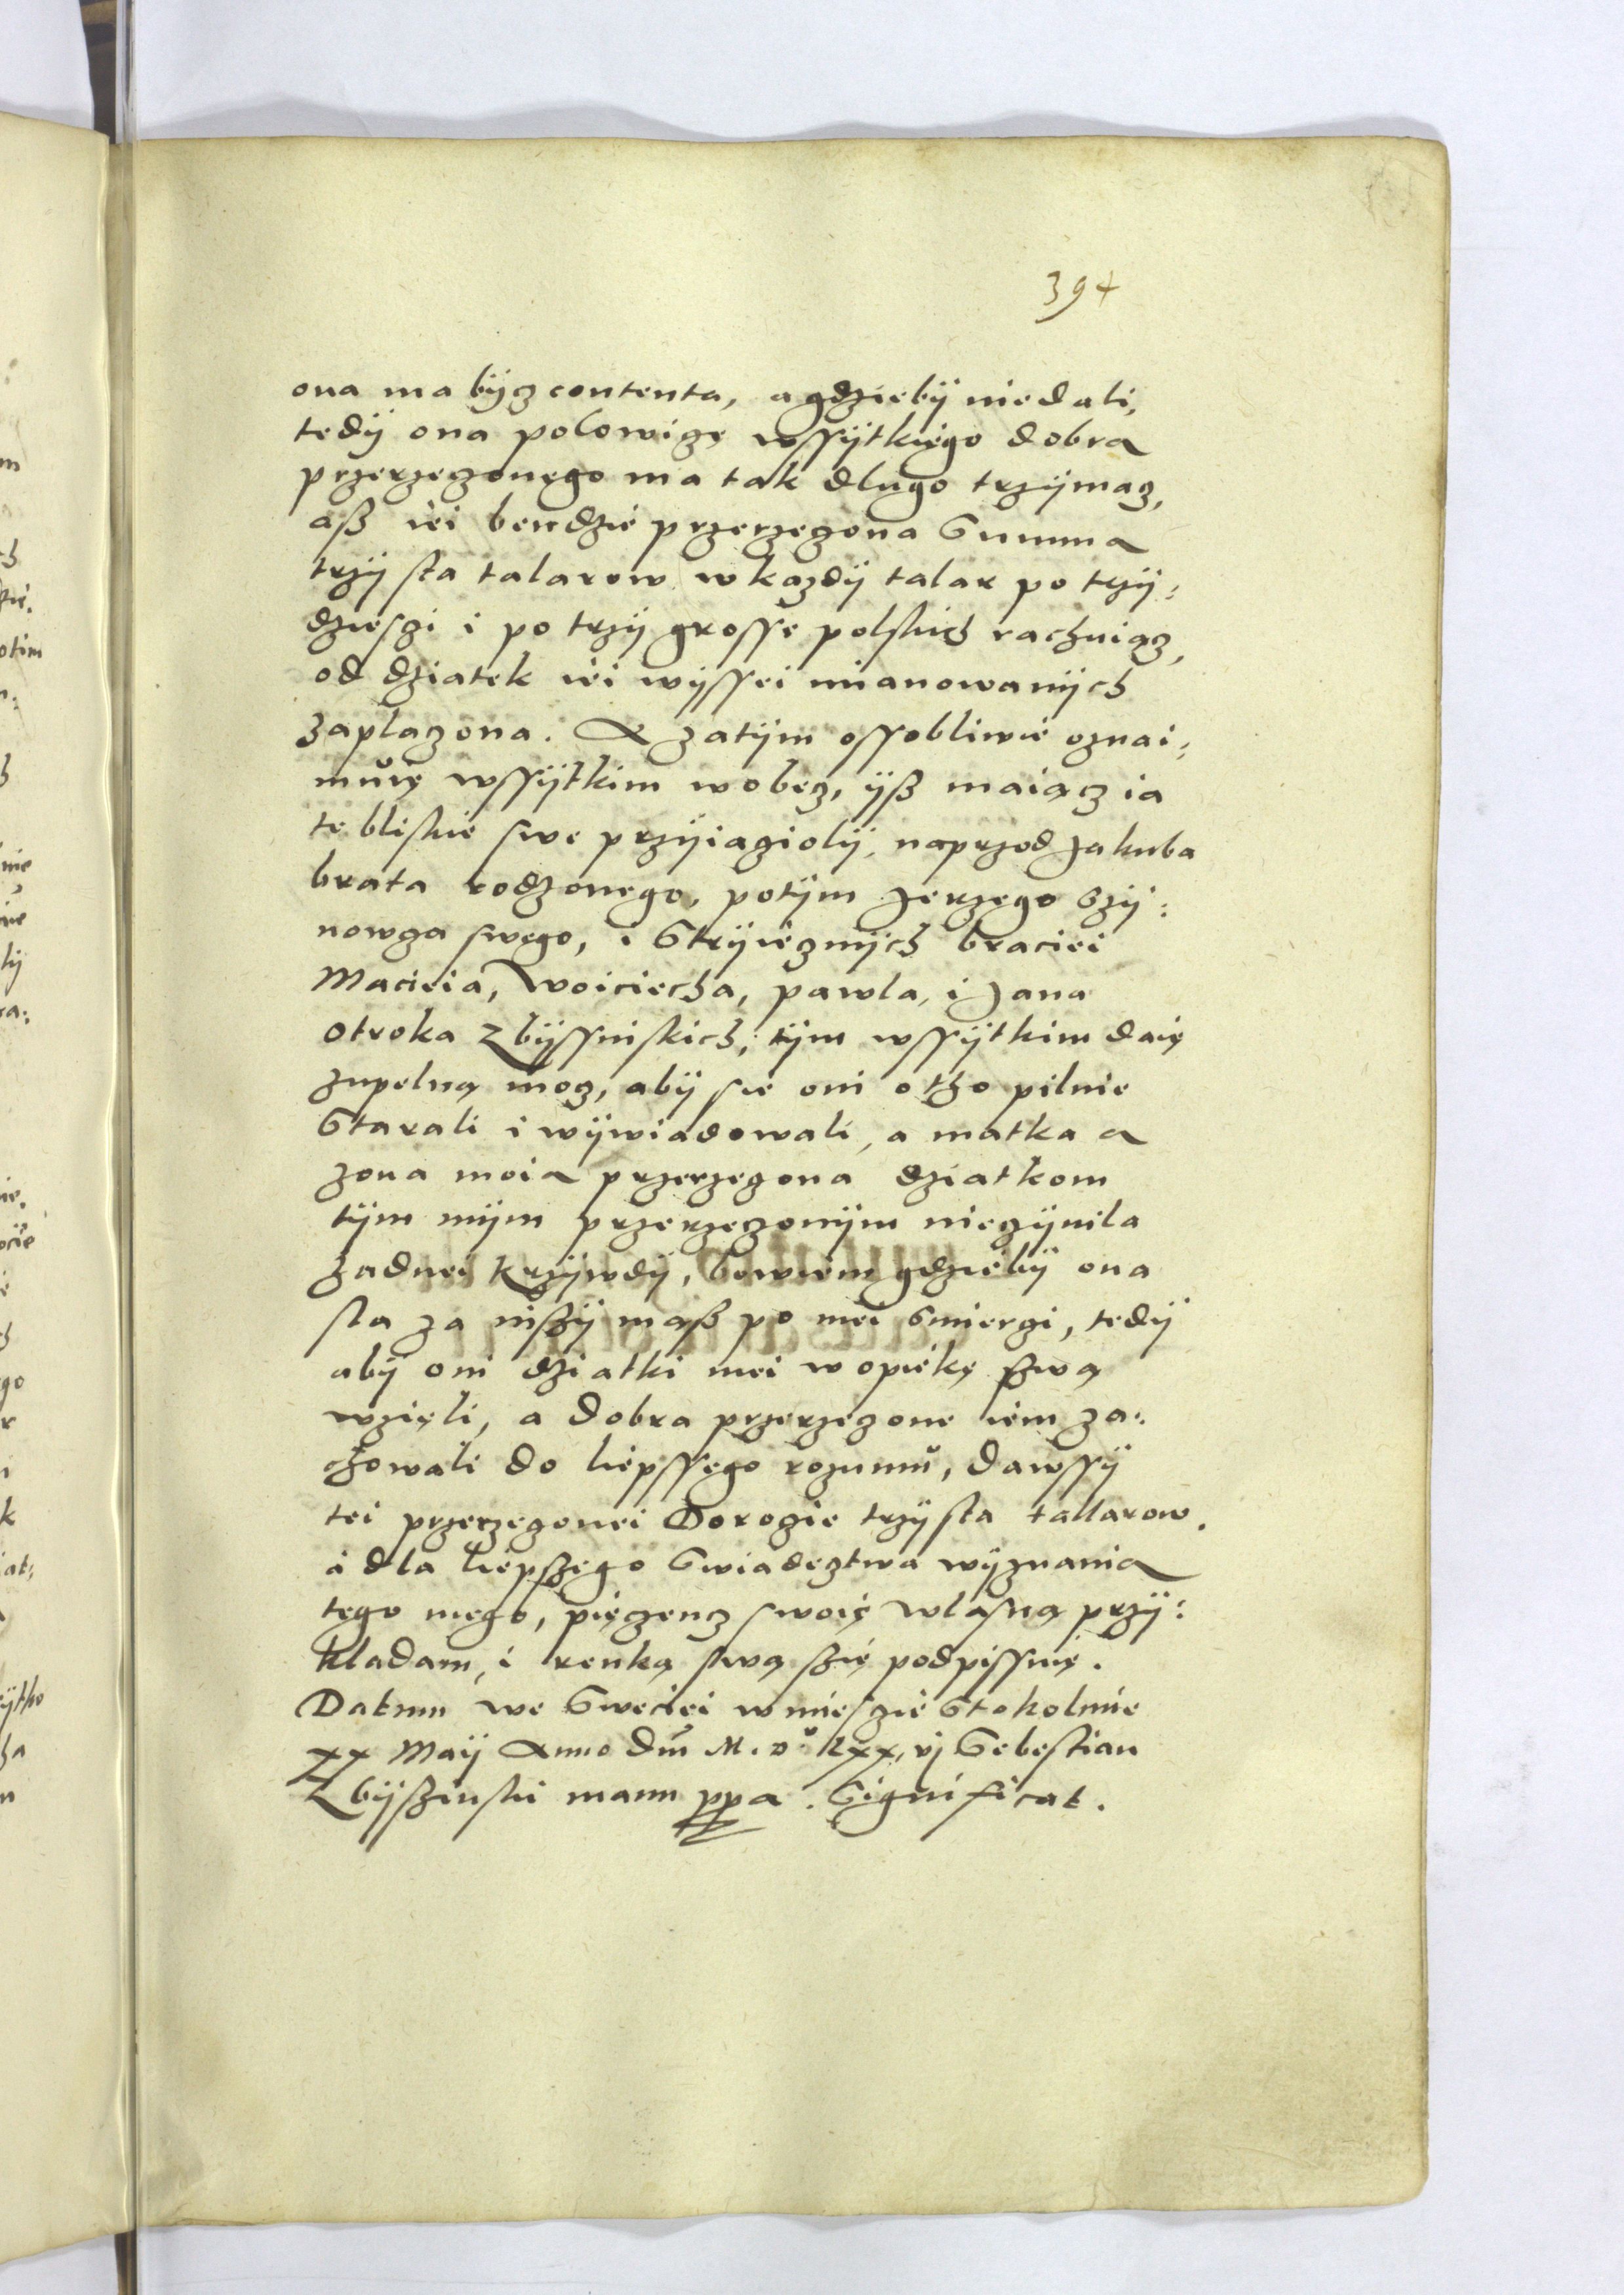 394
ona ma bÿcz contenta, a gdziebÿ nie dali,
tedÿ ona polowiczę wssÿtkięgo dobra
przerzeczonęgo ma tak dlugo trzÿmacz,
aß iei bendzie przerzeczona Summa
trzÿ sta talarow w kazdÿ talar po trzÿ:
dziesczi i po trzÿ grosse polskich rachuiącz,
od dziatek iei wÿssei mianowanÿch
zaplaczona. A zatÿm ossobliwie oznai:
muię wssÿtkim wobecz, ÿß maiącz ia
te bliskie swe przÿiacziolÿ, naprzod Jakuba
brata rodzonego, potÿm Jerzęgo Szÿ:
nowcza swęgo, i Strÿiecznÿch braciei
Macieia, Woiciecha, pawla, i Jana
otroka Zbÿssniskich, tÿm wssÿtkim daię
zupelną mocz, abÿ sie oni o tho pilnie
Starali i wÿwiadowali, a matka a
zona moia przerzeczona dziatkom
tÿm mÿm przerzeczonÿm nieczÿnila
zadnei krzÿwdÿ, bowiem gdziebÿ ona
sla za inßÿ mąß po mei Smierczi, tedÿ
abÿ oni dziatki mei w opiekę szwą
wzięli, a dobra przerzeczone iem za:
chowali do liepssęgo rozumu, dawssÿ
tei przerzeczonei Dorocie trzÿ sta tallarow.
i dla liepszęgo Swiadecztwa wÿznania
tęgo mego, pięczencz swoię wlasną przÿ:
kladam, i renką swą szię podpissuię.
Datum we Sweciei w miesczie Stokolmie
xx Maÿ Anno Dm̃ M. D. Lxx, vj Sebestian
Zbÿszinski manu ppa. Significat.